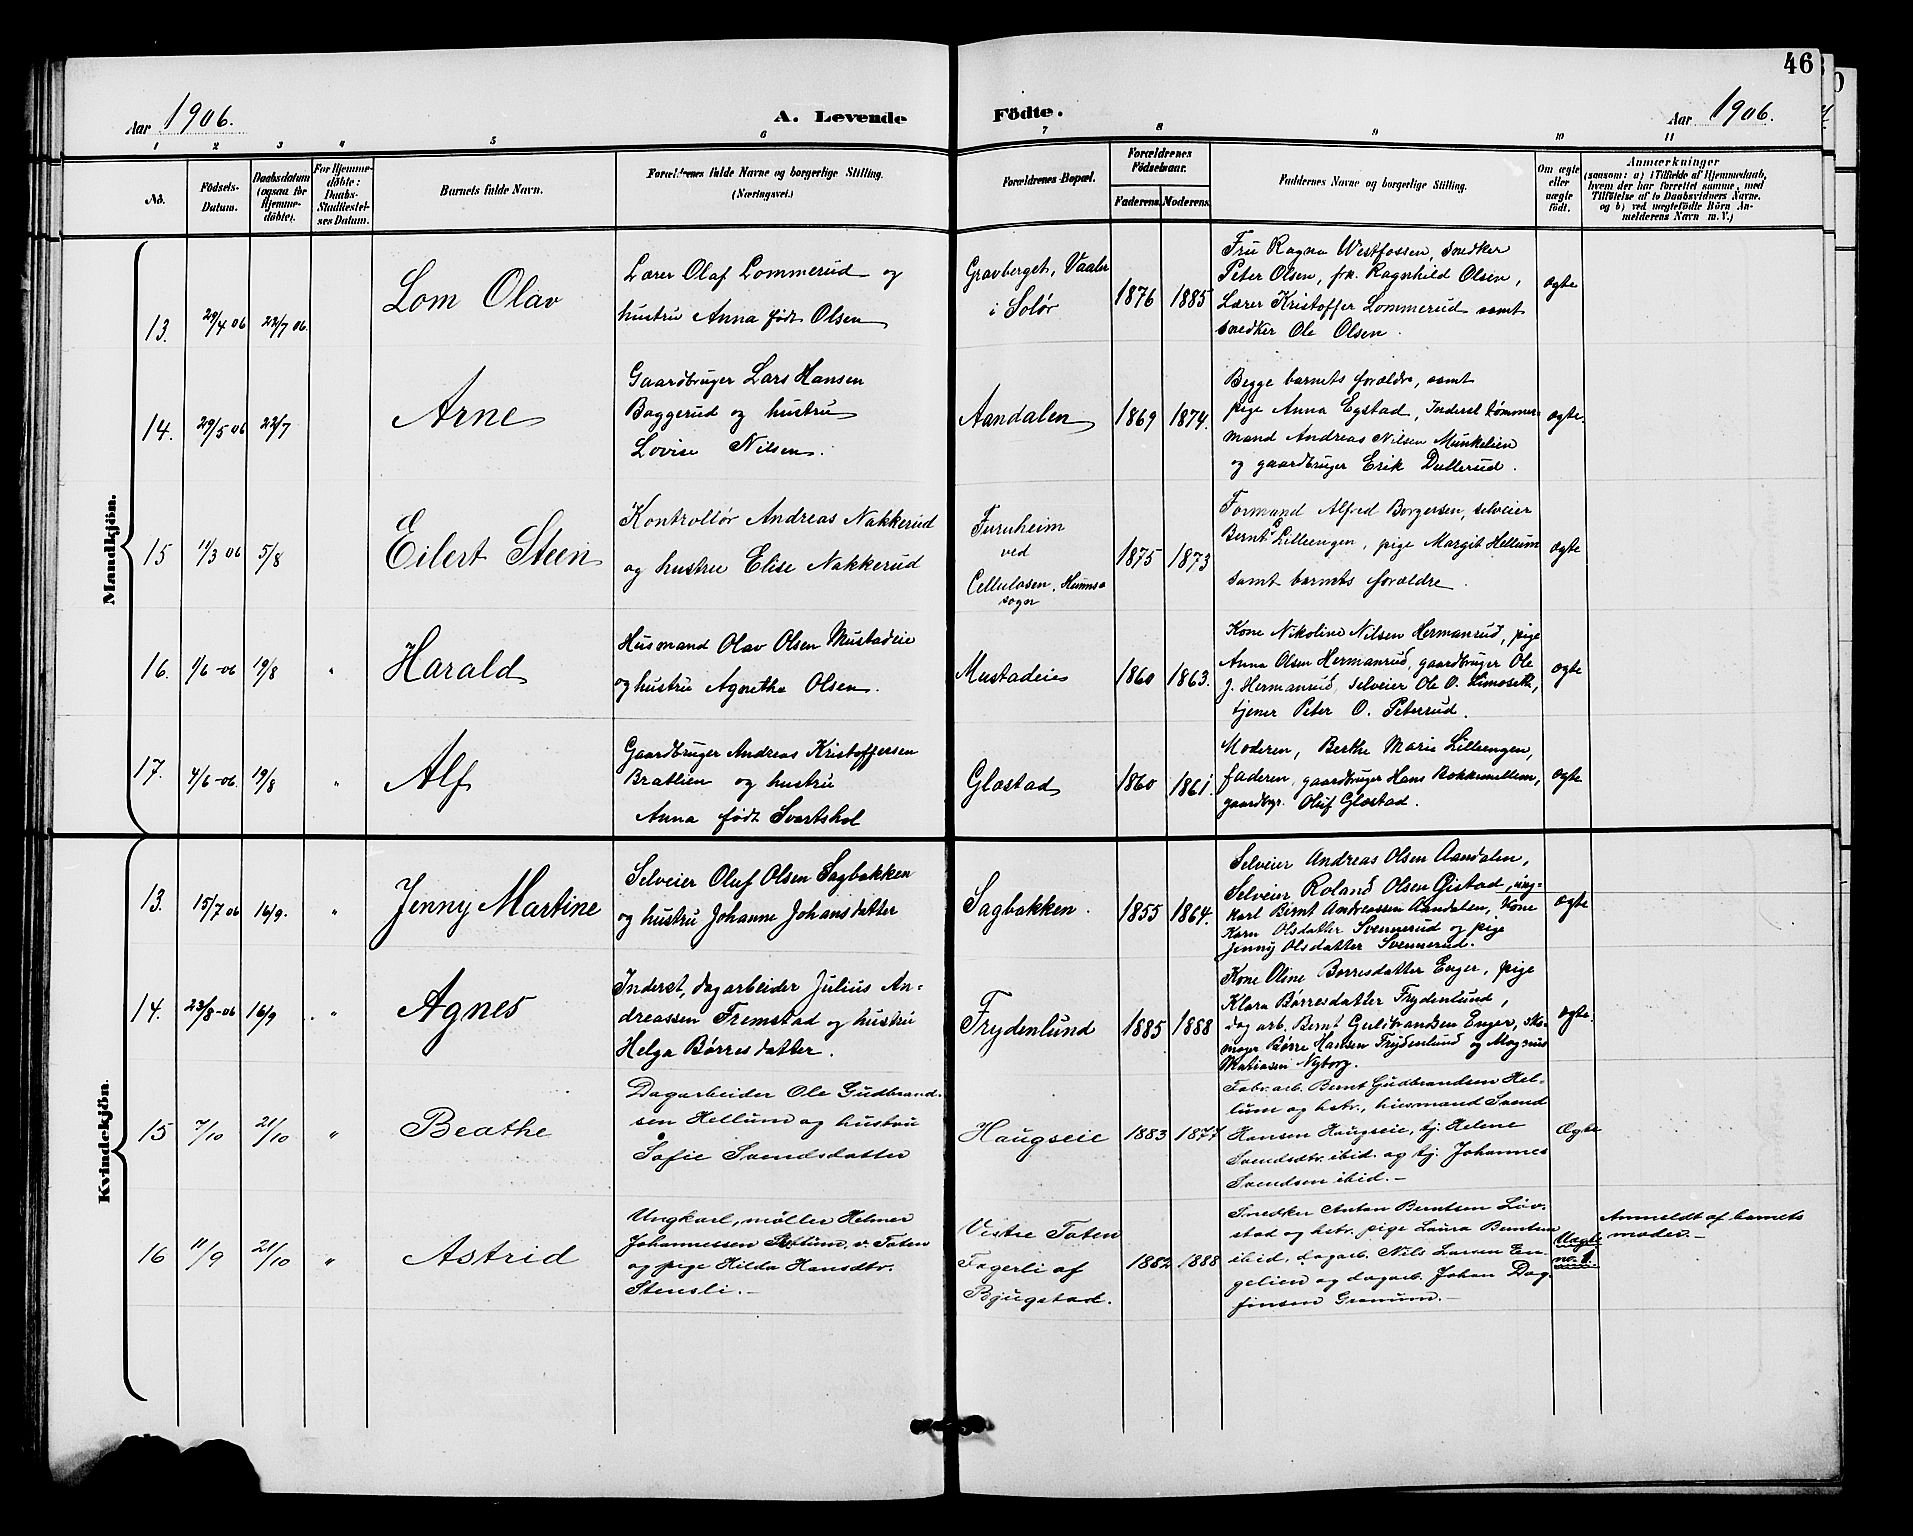 46
Aar 1906.
A. Levende
Födte.
Aar 1906.
1 2 3 4 5 6 7 8 9 10 11
No.
Födsels-
Datum.
Daabsdatum
(ogsaa for
Hjemme-
döbte).
For Hjemme-
döbte:
Daabs-
Stadfæstel-
ses Datum.
Barnets fulde Navn.
Forældrenes fulde Navne og borgerlige Stilling.
(Næringsvei.)
Forældrenes Bopæl.
Forældrenes
Födselsaar.
Faderens. Moderens.
Faddernes Navne og borgerlige Stilling.
Om ægte
eller
uægte
födt.
Anmærkninger
(saasom: a) i Tilfælde af Hjemmedaab,
hvem der har forrettet samme, med
Tilföielse af to Daabsvidners Navne.
og b) ved uægtefödte Börn An-
melderens Navn m. V.)
Mandkjön.
13. 29/4 06 22/7 06.
Lom Olav
Lærer Olaf Lommerud og
hustru Anna født Olsen
Gravberget, Vaaler
i Solør
1876 1885
Fru Ragna Westfossen, snedker
Peter Olsen, frk. Ragnhild Olsen,
Lærer Kristoffer Lommerud samt
snedker Ole Olsen.
ægte
14. 29/5 06 22/7
Arne
Gaardbruger Lars Hansen
Baggerud og hustru
Lovise Nilsen.
Aandalen
1869 1874.
Begge barnets forældre, samt
pige Anna Egstad, Inderst tømmer-
mand Andreas Nilsen Munkelien
og gaardbruger Erik Dullerud.
ægte.
15 11/3 06 5/8
Eilert Steen
Kontrollør Andreas Nakkerud
og hustru Elise Nakkerud
Furuheim
ved
Cellulosen, Hunns
sogn
1875 1873
Formand Alfred Borgersen, selveier
Bernt Lilleengen, pige Margit Hellum
samt barnets forældre.
ægte
16. 1/6-06 19/8 "
Harald
Husmand Olav Olsen Mustadeie
og hustru Agnethe Olsen.
Mustadeie
1860 1863.
Kone Nikoline Nilsen Hermanrud, pige
Anna Olsen Hermanrud, gaardbruger Ole
J. Hermanrud, selveier Ole O.
tjener Peter O. Peterrud.
ægte
17. 4/6-06. 19/8 "
Alf
Gaardbruger Andreas Kristoffersen
Bratlien og hustru
Anna født Svartshol
Glæstad
1860 1861.
Moderen, Berthe Marie Lilleengen,
faderen, gaardbruger Hans Bokkemellem,
gaardbgr. Oluf Glæstad.
ægte
Kvindekjön.
13. 15/7 06 16/9. "
Jenny Martine
Selveier Oluf Olsen Sagbakken
og hustru Johanne Johansdatter
Sagbakken.
1855 1864.
Selveier Andreas Olsen Aandalen,
Selveier Roland Olsen Gistad, ung-
karl Bernt Andreassen Aandalen, Kone
Karn Olsdatter Svennerud og pige
Jenny Olsdatter Svennerud.
ægte
14. 23/8-06 16/9 . "
Agnes
Inderst, dagarbeider Julius An-
dreassen Fremstad og hustru
Helga Børresdatter.
Frydenlund
1885 1888
Kone Oline Børresdatter Enger, pige
Klara Børresdatter Frydenlund,
dag arb. Bernt Gulbrandsen Enger, sko-
mager Børre Hansen Frydenlund og Magnus
Mathiasen Nyborg.
ægte.
15 7/10 21/10 "
Beathe
Dagarbeider Ole Gudbrand-
sen Hellum og hustru
Sofie Svendsdatter
Haugseie
1883 1877
Fabr. arb. Bernt Gudbrandsen Hel-
lum og hstr., husmand Svend
Hansen Haugseie, tj. Helene
Svendsdtr. ibid. og tj. Johannes
Svendsen ibid.-
Ægte
16 11/9 21/10 "
Astrid
Ungkarl, møller Helmer
Johannessen v. Toten
og pige Hilda Hansdtr.
Stensli.-
Vestre Toten
Fagerli af
Bjugstad.
1882 1888
Snedker Anton Berntsen Løv-
stad og hstr. pige Laura Berntsen
ibid, dagarb. Nils Larsen En-
gelien og dagarb. Johan Dag-
finsen Granum.-
Uægte
no. 1.
Anmeldt af barnets
moder.-